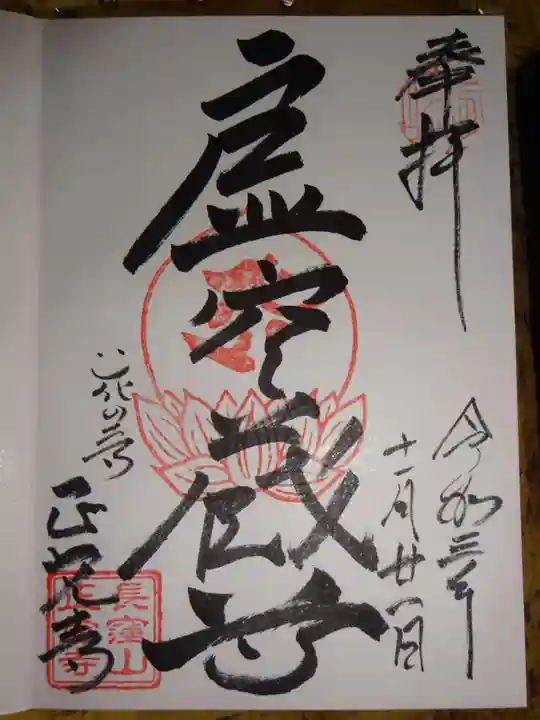 奉拝
令和三年
十一月廿一日
虚空蔵尊
花の寺
正覚寺
長窪山
正覚寺